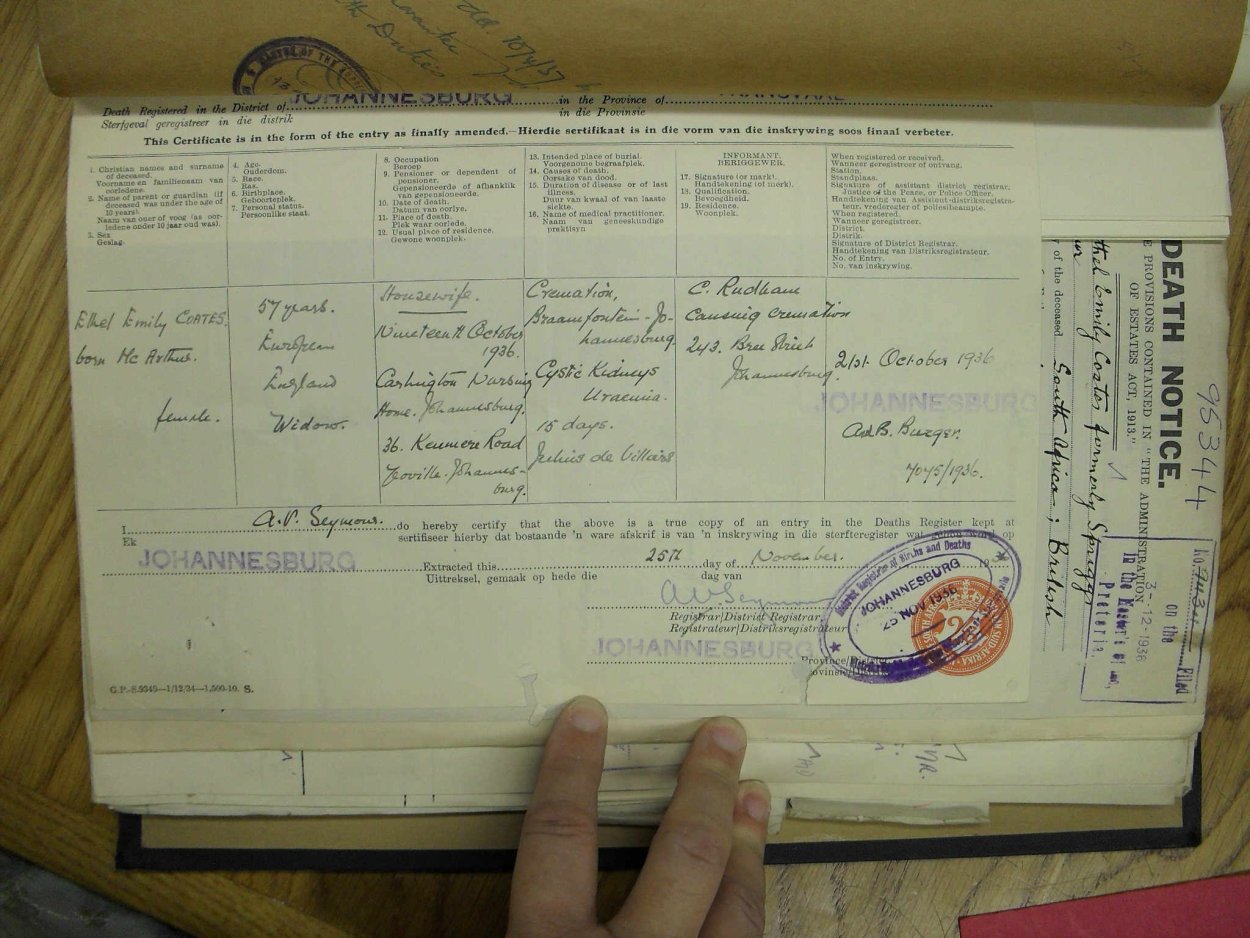 del. 10/4/37
Death Duties
MASTER OF THE
Death Registered in the District of JOHANNESBURG in the Province of TRANSVAAL
Sterfgeval geregistreer in die distrik in die Provinsie
This Certificate is in the form of the entry as finally amended.—Hierdie sertifikaat is in die vorm van die inskrywing soos finaal verbeter.
1. Christian names and surname
of deceased.
Voorname en familienaam van
oorledene.
2. Name of parent or guardian (if
deceased was under the age of
10 years).
Naam van ouer of voog (as oor-
ledene onder 10 jaar oud was).
3. Sex
Geslag.
4. Age.
Ouderdom.
5. Race.
Ras.
6. Birthplace.
Geboorteplek.
7. Personal status.
Persoonlike staat.
8. Occupation
Beroep
9. Pensioner or dependent of
pensioner.
Gepensioneerde of afhanklik
van gepensioneerde.
10. Date of death.
Datum van oorlye.
11. Place of death.
Plek waar oorlede.
12. Usual place of residence.
Gewone woonplek.
13. Intended place of burial.
Voorgenome begraafplek.
14. Causes of death.
Oorsake van dood.
15. Duration of disease or of last
illness.
Duur van kwaal of van laaste
siekte.
16. Name of medical practitioner.
Naam van geneeskundige
praktisyn
INFORMANT.
BERIGGEWER.
17. Signature (or mark).
Handtekening (of merk).
18. Qualification.
Bevoegdheid.
19. Residence.
Woonplek.
When registered or received.
Wanneer geregistreer of ontvang.
Station.
Standplaas.
Signature of assistant district registrar,
Justice of the Peace, or Police Officer.
Handtekening van Assistent-distriksregistra-
teur, vrederegter of polisiebeampte.
When registered.
Wanneer geregistreer.
District.
Distrik.
Signature of District Registrar.
Handtekening van Distriksregistrateur.
No. of Entry.
No. van inskrywing.
Ethel Emily COATES.
born Mc Arthur.
female.
57 years.
European
England
Widow.
Housewife.
Nineteenth October
1936.
Cashington Nursing
Home. Johannesburg.
36. Kenmere Road
Yeoville. Johannes-
burg.
Cremation,
Braamfontein - Jo-
hannesburg.
Cystic Kidneys
Uraemia.
15 days.
Julius de Villiers
C. Rudham
Causing Cremation
243. Bree Street
Johannesburg.
21st October 1936
JOHANNESBURG
A.B. Burger.
7045/1936.
I A.V. Seymour. do hereby certify that the above is a true copy of an entry in the Deaths Register kept at
Ek sertifiseer hierby dat bostaande 'n ware afskrif is van 'n inskrywing in die sterfteregister wat gehou word op
JOHANNESBURG Extracted this 25th day of November. 193
Uittreksel, gemaak op hede die dag van
A.V. Seymour
Registrar/District Registrar,
Registrateur/Distriksregistrateur
JOHANNESBURG
Province/District
Provinsie/Distrik
District Registrar of Births and Deaths
JOHANNESBURG
25 NOV 1936
G.P.-S.9349—1/12/34—1,500-10. S.
95344
DEATH NOTICE.
E PROVISIONS CONTAINED IN "THE ADMINISTRATION
OF ESTATES ACT, 1913."
thel Emily Coates formerly Spriggs
y of the deceased South Africa; British
No. Filed
on the
3-12-1936
in the Master's Office,
Pretoria.